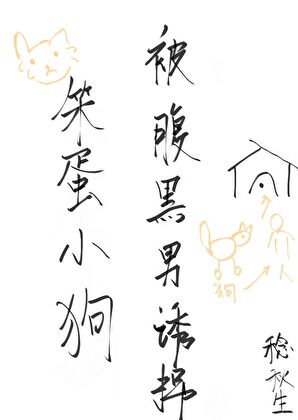 笨蛋小狗
被腹黑男诱拐
狗
人
稔秋生